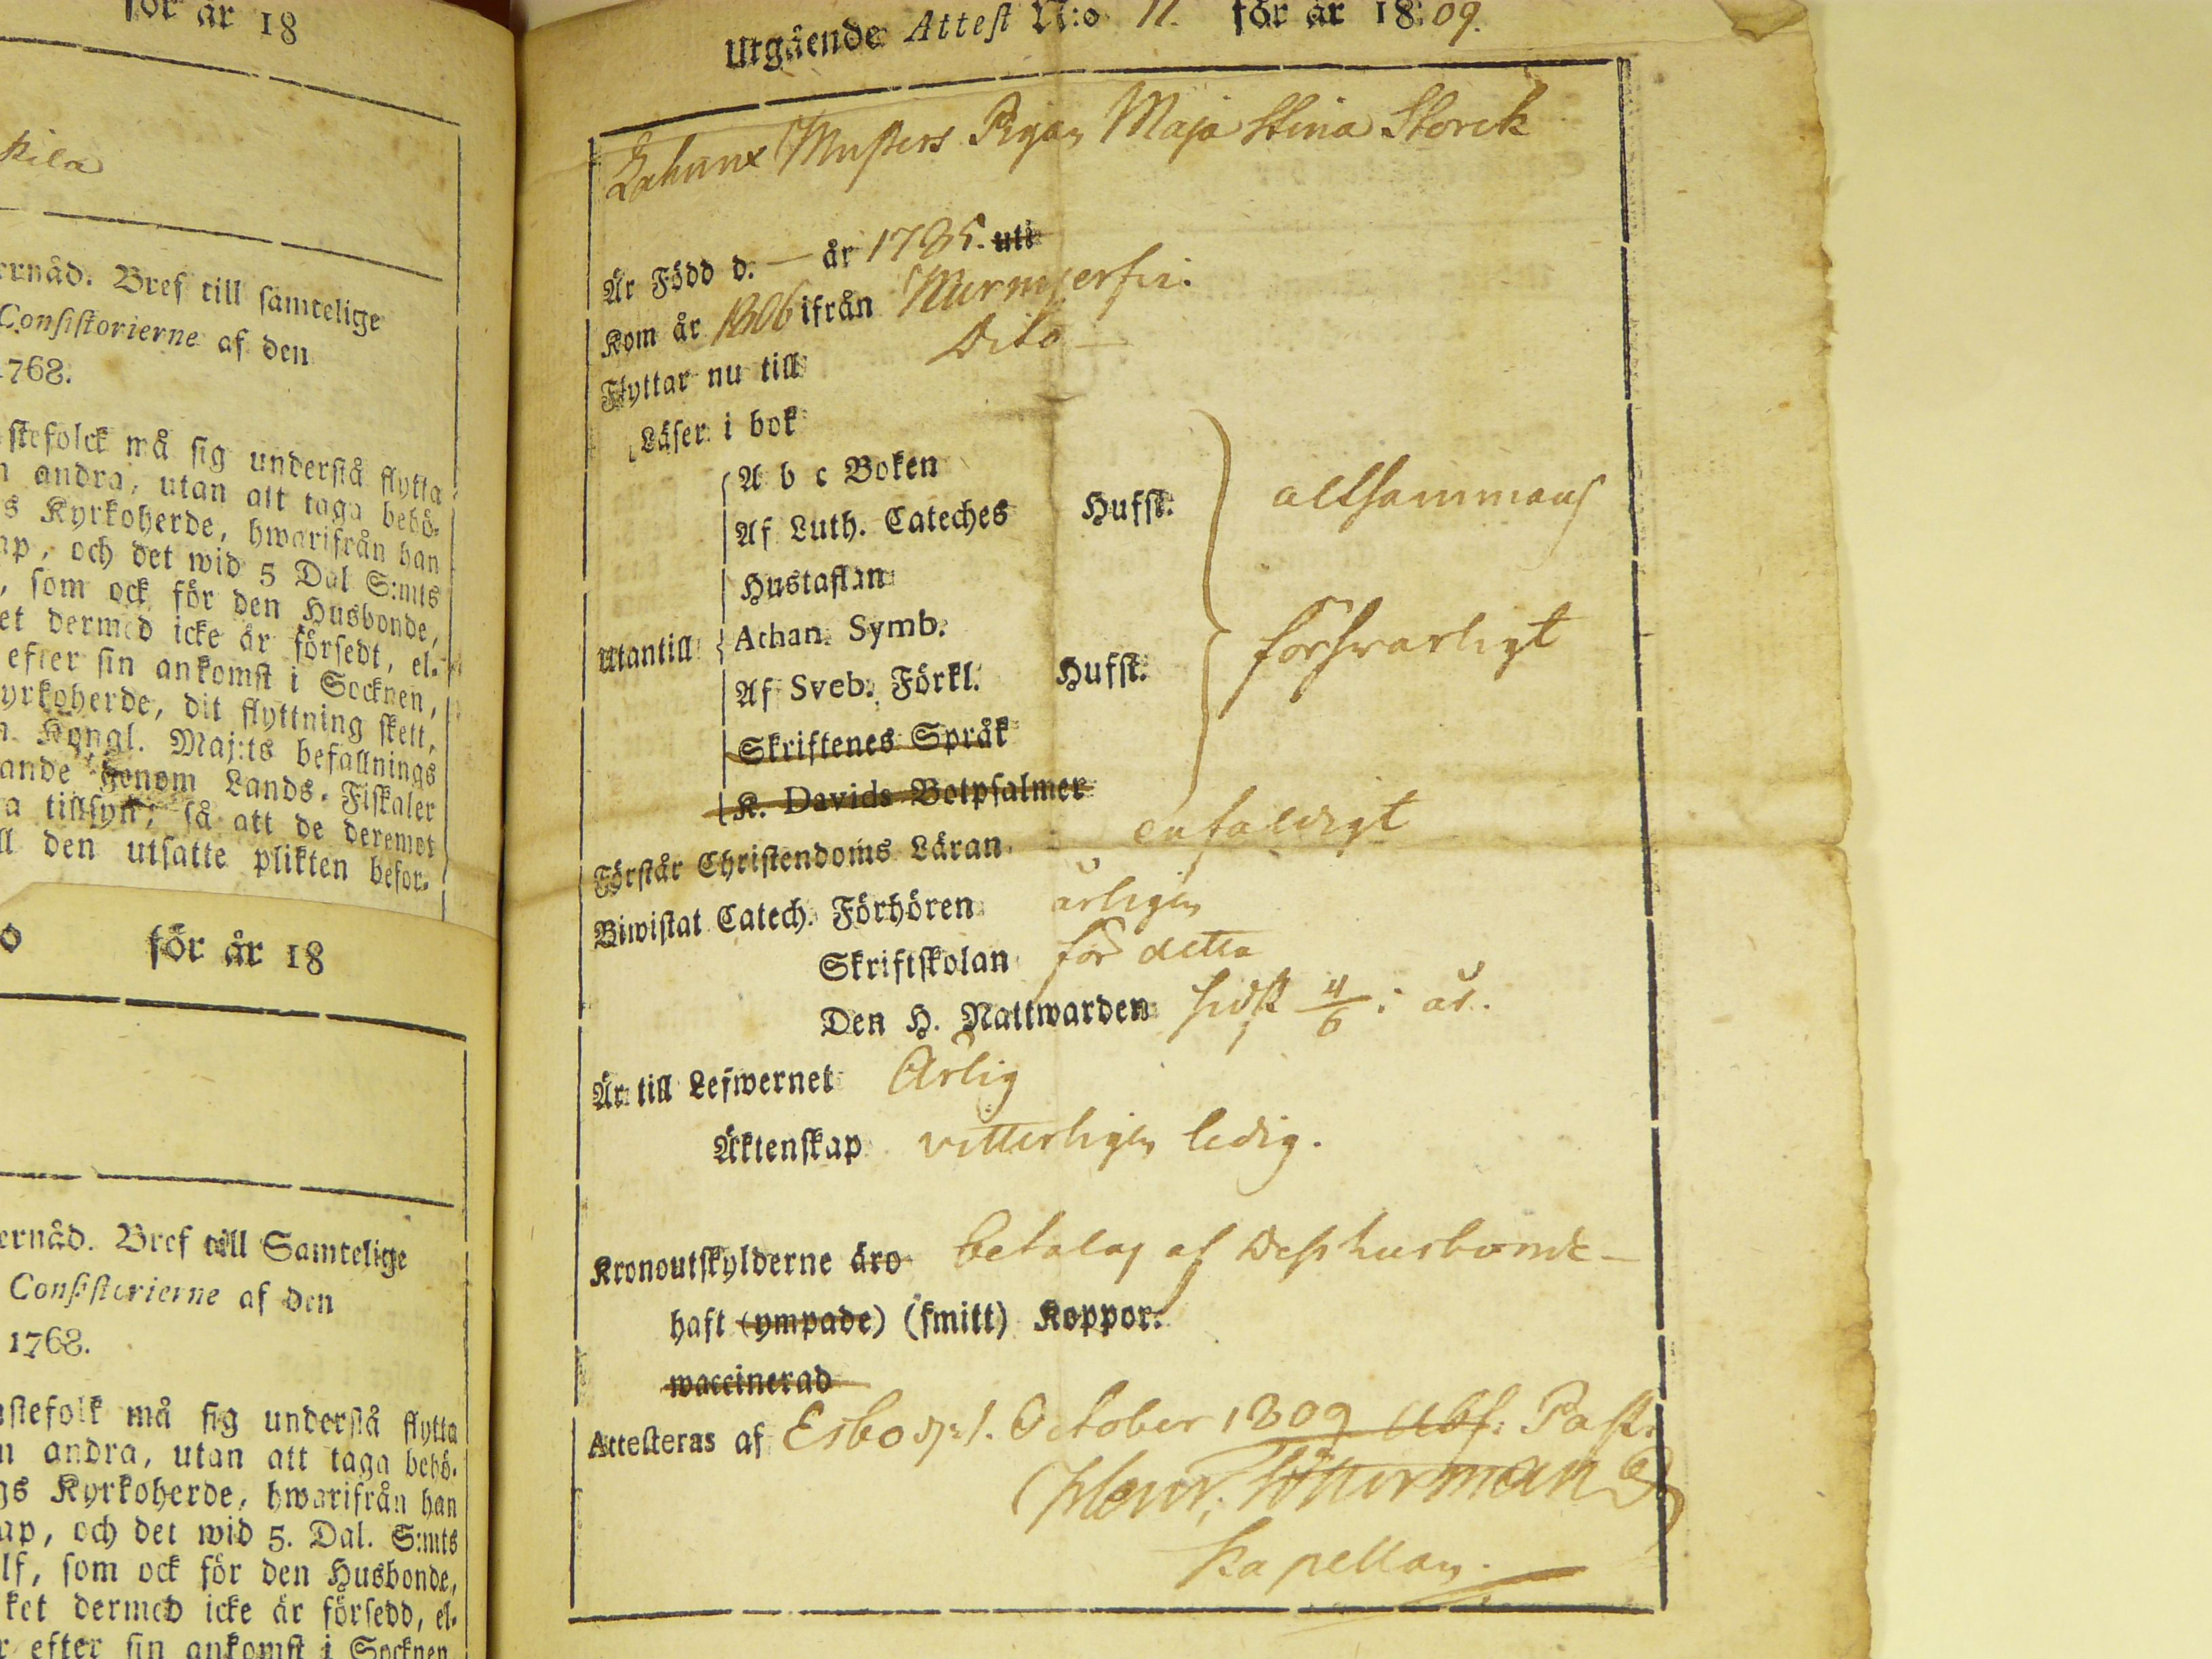 för år 18
kila
ernåd. Bref till samtelige
Consistorierne af den
1768.
stefolck må sig understå flytta
n andra, utan att taga behö-
s Kyrkoherde, hwarifrån han
ap, och det wid 5 Dal S:mts
, som ock för den Husbonde,
et dermed icke är försedt, el-
efter sin ankomst i Socknen,
yrkoherde, dit flyttning skett,
n. Kongl. Maj:ts befallnings
ande genom Lands-Fiskaler
a tillsyn, så att de deremot
ll den utsatte plikten befor-
o för år 18
ernåd. Bref till Samtelige
Consistorierne af den
1768.
nstefolk må sig understå flytta
n andra, utan att taga behö-
gs Kyrkoherde, hwarifrån han
ap, och det wid 5. Dal. S:mts
lf, som ock för den Husbonde,
ket dermed icke är försedd, el-
r efter sin ankomst i Socknen
Utgående Attest N:o 11. för år 18:09.
Pigan Maja Stina Storck
Är Född d. — år 1785. uti
Kom år 1806 ifrån Nurmijerfvi.
Flyttar nu till Dito —
Läser i bok
A b c Boken
Af Luth. Cateches Hufst. altsammans
Hustaflan
Utantill Athan. Symb. försvarligt
Af Sveb. Förkl. Hufst.
Skriftenes Språk
K. Davids Botpsalmer
Förstår Christendoms Läran enfaldigt
Biwistat Catech. Förhören årligen
Skriftskolan för detta
Den H. Nattwarden sidst 4/6 i år.
Är till Lefwernet Ärlig
Äktenskap vitterligen ledig.
Kronoutskylderne äro betalas af Dess husbonde —
haft (ympade) (smitt) Koppor.
waccinerad
Attesteras af Esbo d. 1. October 1809 Abs: Past.
Henr:
Kapellan.